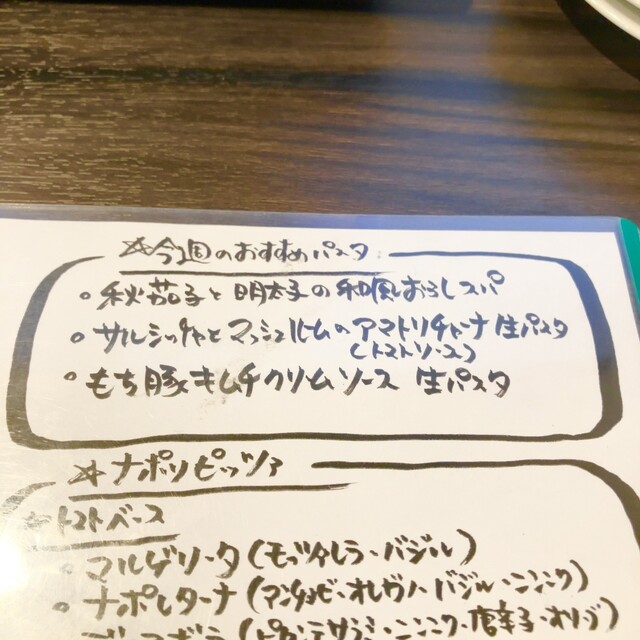 ☆今週のおすすめパスタ
・秋茄子と明太子の和風おろしスパ
・サルシッチャとマッシュルームのアマトリチャーナ 生パスタ
(トマトソース)
・もち豚キムチクリームソース 生パスタ
☆ナポリピッツァ
トマトベース
・マルゲリータ(モッツァレラ・バジル)
・ナポレターナ(アンチョビ・オレガノ・バジル・ニンニク)